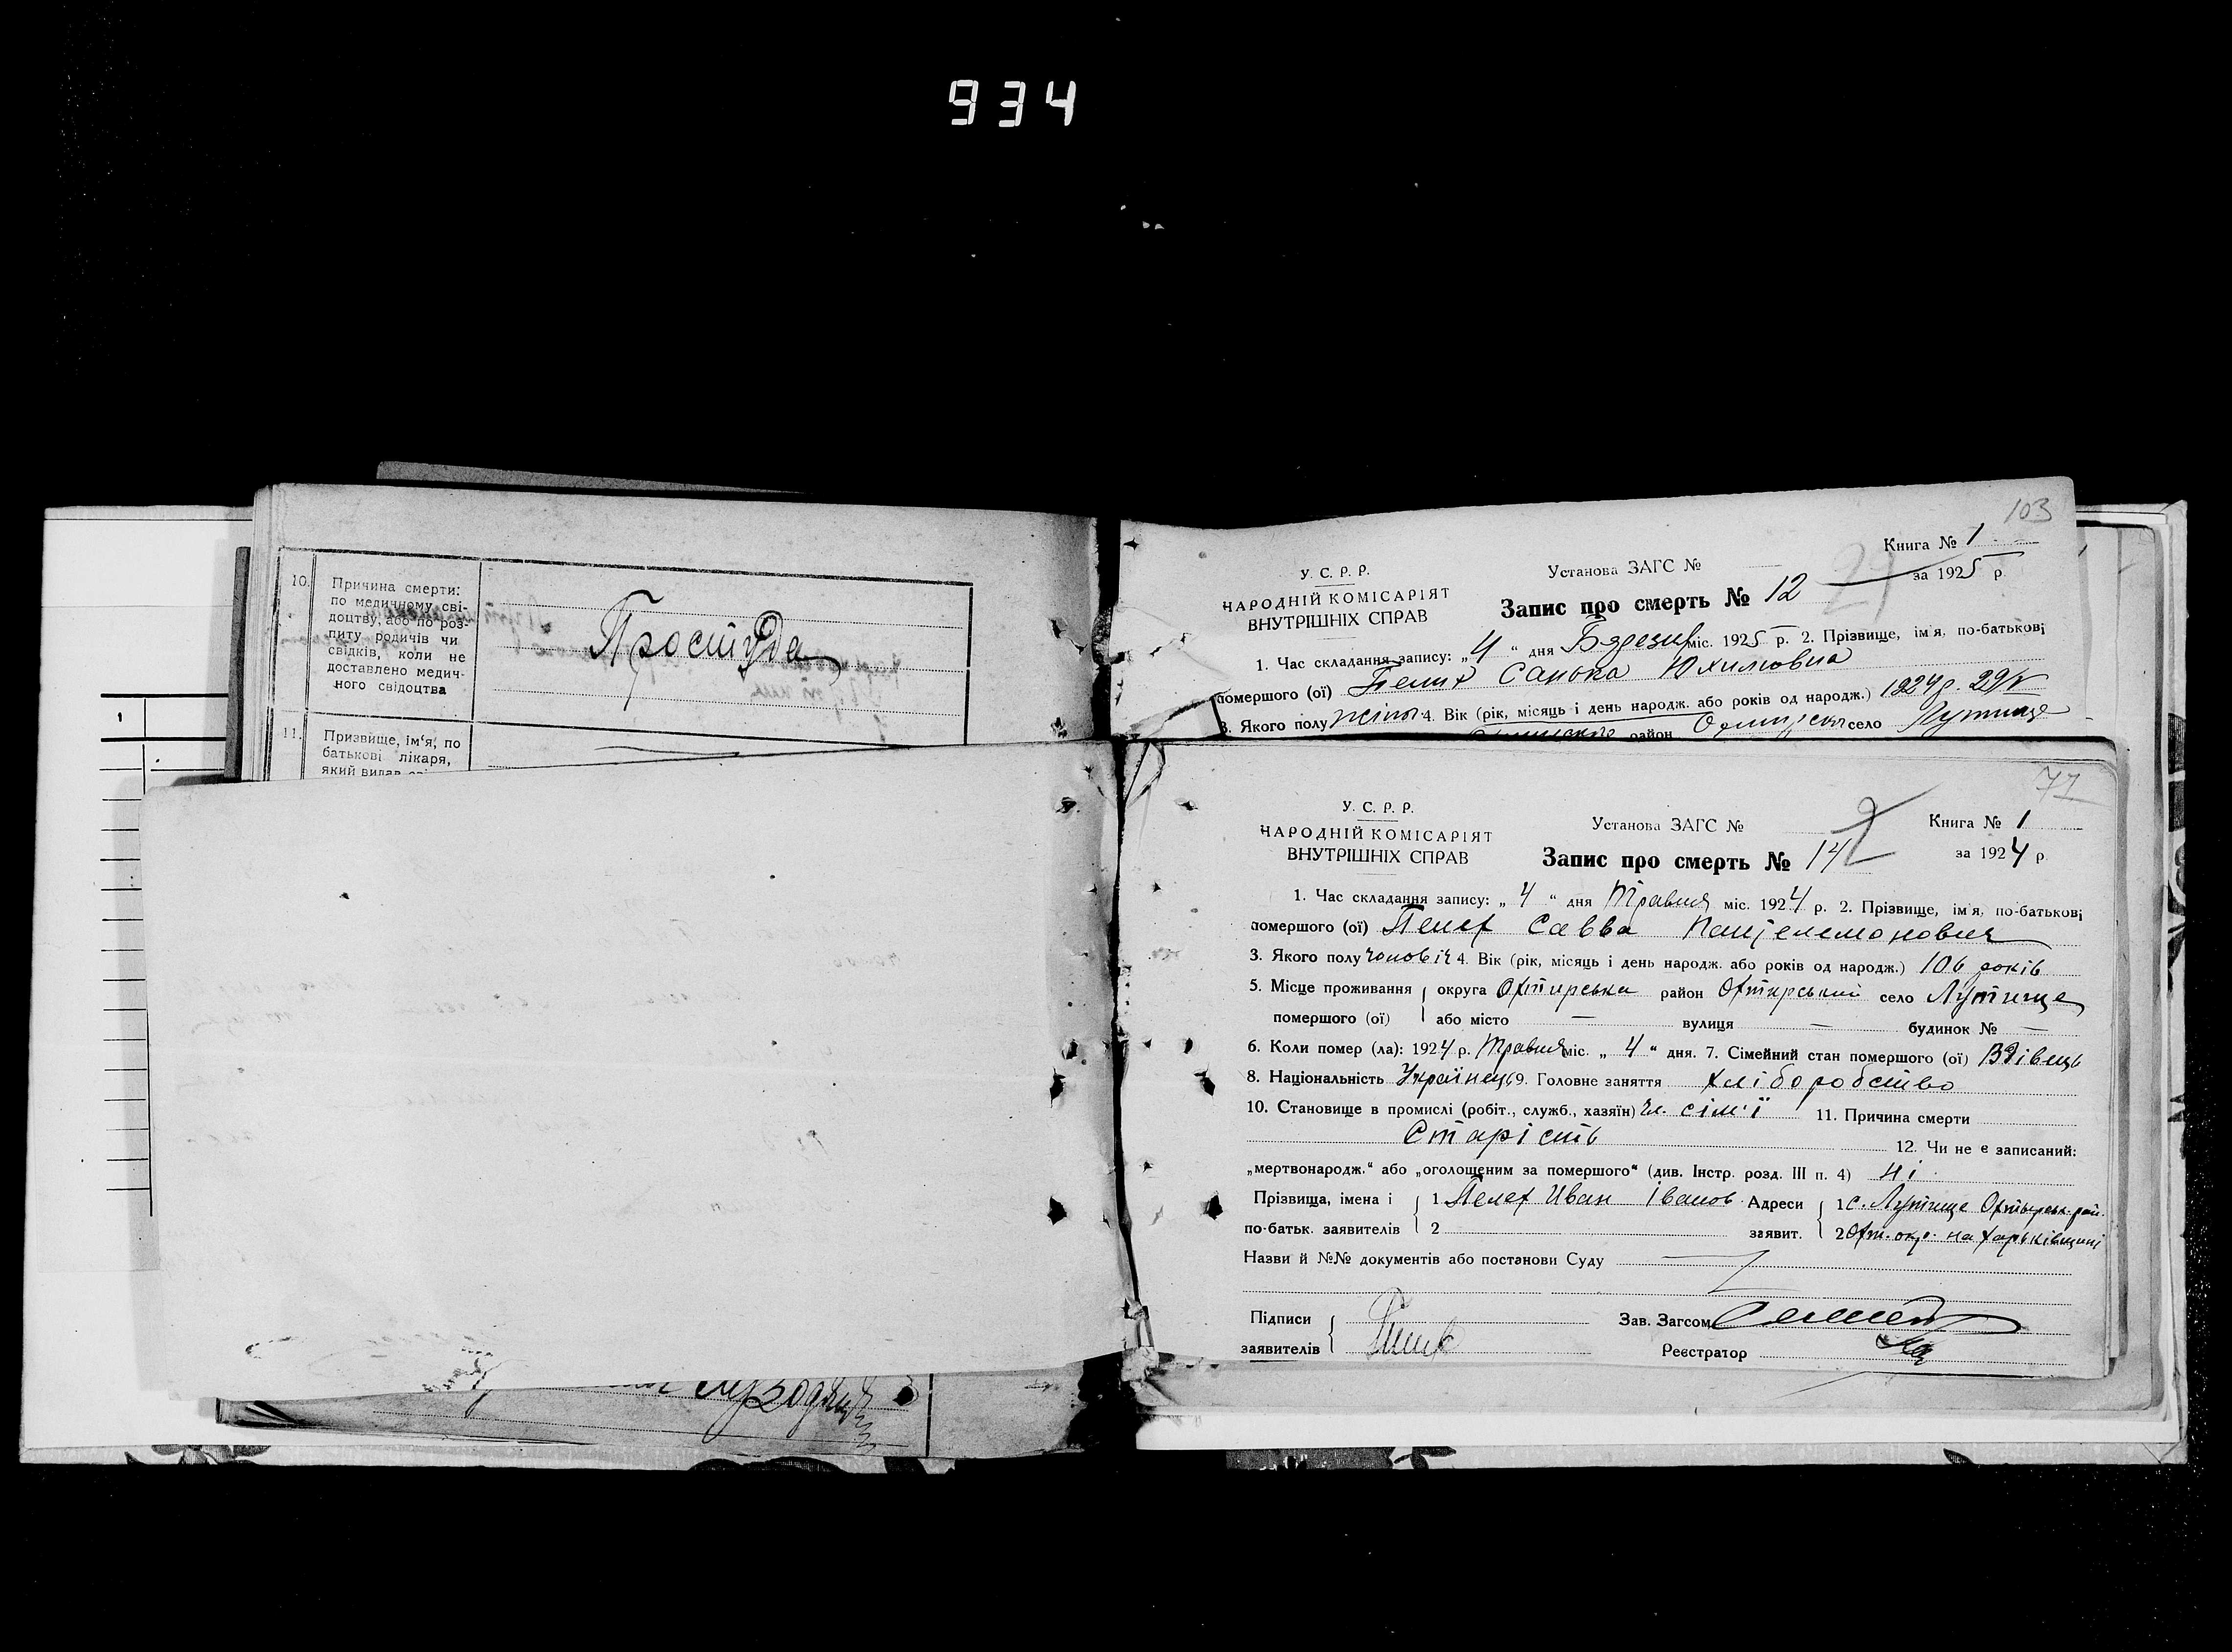 934
10. Причина смерти:
по медичному сві-
доцтву, або по роз-
питу родичів чи
свідків, коли не
доставлено медич-
ного свідоцтва
Простуда
11. Призвище, ім'я, по
батькові лікаря,
який видав
103
У. С. Р. Р.
НАРОДНІЙ КОМІСАРІЯТ
ВНУТРІШНІХ СПРАВ
Установа ЗАГС №
Книга № 1
за 1925 р.
Запис про смерть № 12
1. Час складання запису: „4“ дня міс. 1925 р. 2. Прізвище, ім'я, по-батькові
помершого (ої) Санька Юхимовна
3. Якого полу жіноч 4. Вік (рік, місяць і день народж. або років од народж.) 1924 р. 29/V
район село Лутище
77
У. С. Р. Р.
НАРОДНІЙ КОМІСАРІЯТ
ВНУТРІШНІХ СПРАВ
Установа ЗАГС №
Книга № 1
за 1924 р.
Запис про смерть № 14
1. Час складання запису: „4“ дня Травня міс. 1924 р. 2. Прізвище, ім'я, по-батькові
помершого (ої) Пелех Савва
3. Якого полу чоловіч 4. Вік (рік, місяць і день народж. або років од народж.) 106 років
5. Місце проживання округа Охтирська район Охтирський село Лутище
помершого (ої) або місто — вулиця — будинок № —
6. Коли помер (ла): 1924 р. Травня міс. „4“ дня. 7. Сімейний стан помершого (ої) Вдівець
8. Національність Українець 9. Головне заняття хліборобство
10. Становище в промислі (робіт., служб., хазяїн) чл. сім'ї 11. Причина смерти
Старість 12. Чи не є записаний:
„мертвонародж.“ або „оголошеним за помершого“ (див. Інстр. розд. III п. 4) ні
Прізвища, імена і 1 Пелех Иван Іванов Адреси 1 с. Лутище Охтырськ. рай.
по-батьк. заявителів 2 заявит. 2 Охт. окр. на Харьківщині
Назви й №№ документів або постанови Суду
Підписи Зав. Загсом
заявителів Реєстратор